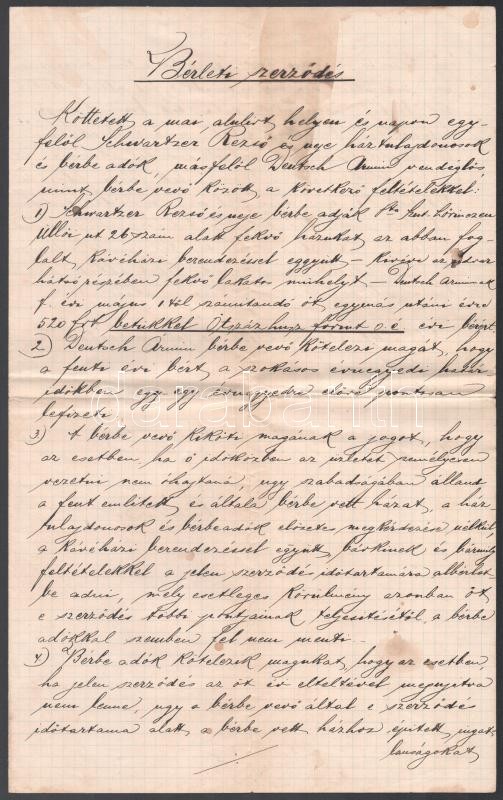 Bérleti szerződés
Köttetett a mai, alulírt helyen és napon egy-
felől Schwartzer Rezső és neje háztulajdonosok
és bérbe adók, másfelől Deutsch Armin vendéglős
mint bérbe vevő között a következő feltételekkel:
1) Schwartzer Rezső és neje bérbe adják Pta Szt. Lőrinczen
Üllői ut 26 szám alatt fekvő házukat az abban fog-
lalt kávéházi berendezéssel eggyütt - kivéve az udvar
hátsó részében fekvő lakatos műhelyt - Deutsch Armin-nak
f. évi május 1től számitandó öt egymás utáni évre
520 frt betükkel Ötszázhusz forint o.é. évi bérért
2) Deutsch Armin bérbe vevő kötelezi magát, hogy
a fenti évi bért a szokásos évnegyedi határ
időkben egy egy évnegyedre előre pontosan
lefizeti
3) A bérbe vevő kiköti magának a jogot, hogy
az esetben, ha ő időközben az üzletet személyesen
vezetni nem óhajtaná, ugy szabadságában álland
a fent említett és általa bérbe vett házat, a ház-
tulajdonosok és bérbeadók előzetes megkérdezése nélkül
a kávéházi berendezéssel együtt bárkinek és bármily
feltételekkel a jelen szerződés időtartamára albérlet-
be adni, mely esetleges körülmény azonban őt
e szerződés többi pontjainak teljesitésétől a bérbe
adókkal szemben fel nem menti.-
4) Bérbe adók kötelezik magukat, hogy az esetben,
ha jelen szerződés az öt év elteltével megnyitva
nem lenne, ugy a bérbe vevő által e szerződés
időtartama alatt a bérbe vett házhoz épített ingat-
lanságokat
darabanth